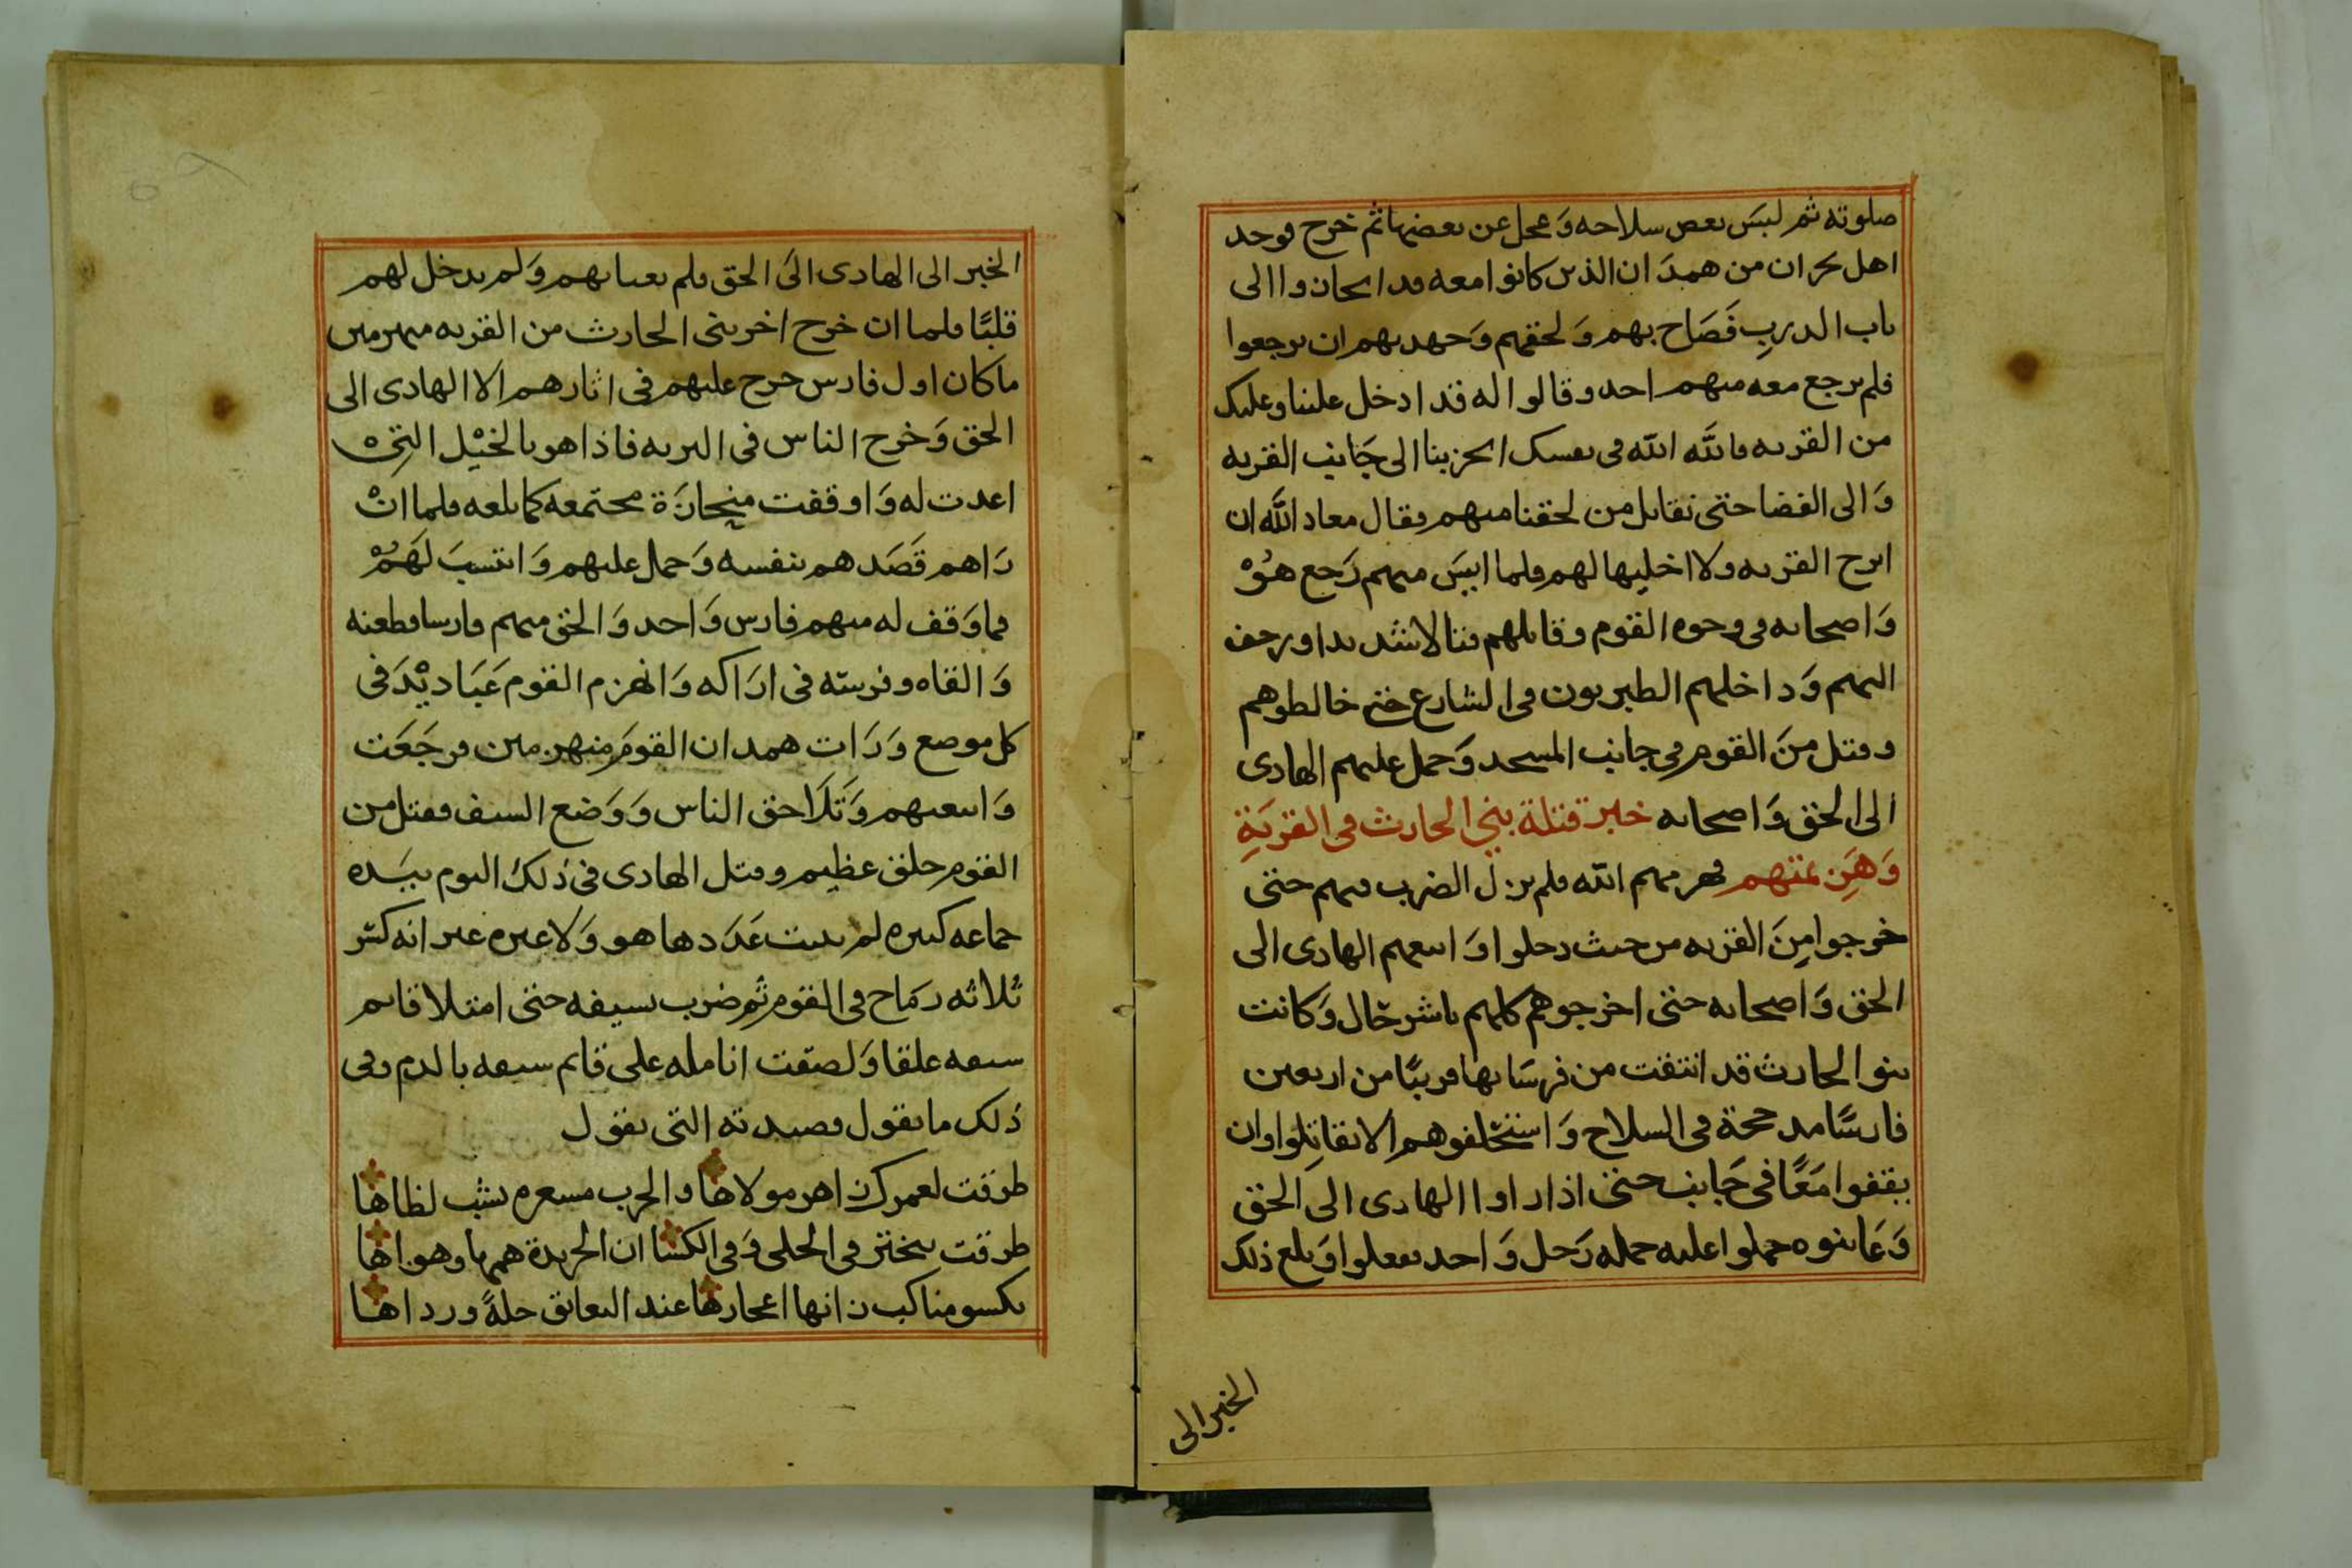 صلوته ثم لبس بعض سلاحه وَعجل عن بعضها ثم خرج فوجد
اهل نجران من همدَان الذين كانوا معه قد انحازوا الى
باب الدربِ فَصَاح بهم وَلحقهم وَجهد بهم ان يرجعوا
فلم يرجع معه منهم احد وقالوا له قد ادخل علينا وعليك
من القريه فاللَّه اللّه فى نفسك اخرج بنا الى جَانب القريه
وَالى الفضا حتى نقاتل من لحقنا منهم فقال معاد اللَّه ان
ابرح القريه ولا اخليها لهم فلما ايسَ منهم رَجع هُوْ
وَاصحابه فى وجوه القوم وقاتلهم قتالا شديدا ورجف
اليهم وَداخلهم الطبريون فى الشارع حتى خالطوهم
وقتل منَ القوم فى جانب المسجد وَحمل عليهم الهادى
الى الحق وَاصحابه خبر قتلة بني الحارث فى القريَةِ
وَهَزِيمتهم فهزمهم اللّه فلم يزل الضرب فيهم حتى
خرجوا مِنَ القريه من حيث دخلوا وَاتبعهم الهادى الى
الحق وَاصحابه حتى اخرجوهم كلهم باشر حَال وَكانت
بنو الحارث قد انتقت من فرسَانها قريبًا من اربعين
فارسًا مدججة فى السلاح وَاستحلفوهم الا يقاتِلوا وان
يقفوا مَعًا فى جَانب حتى اذا راوا الهادى الى الحق
وَعَاينوه حملوا عليه حمله رَجل وَاحد ففعلوا وَبلغ ذلك
الخبر الى
الخبر الى الهادى الىَ الحق فلم يعبا بهم وَلم يدخل لهم
قلبًا فلما ان خرج اخر بنى الحارث من القريه منهزمين
ما كان اول فارس خرج عليهم فى اثارهم الا الهادى الى
الحق وَخرج الناس فى البريه فاذا هو بالخيْل التِىْ
اعدت له وَاوقفت منحازَة مجتمعه كما بلغه فلما انْ
رَاهم قَصَدهم بنفسه وَحمل عليهم وَانتسبَ لَهَمُْ
فما وَقف له منهم فارس وَاحد وَالحق منهم فارسا فطعنه
وَالقاه وفرسَه فى ارَاكه وَانهزم القوم عَبَاديْدَ فى
كل موضع وَرَات همدان القومَ منهزمين فرجَعَت
وَاتبعتهم وَتَلَاحق الناس وَوَضع السيف فقتل من
القوم خلق عظيم وقتل الهادى فى ذلك اليوم بيَده
جماعه كبيره لم يثبت عَدَدها هو وَلا غيره غير انه كسر
ثلاثه رمَاح فى القوم ثم ضرب بسيفه حتى امتلا قايم
سيفه علقا وَلصقت انامله على قايم سيفه بالدم وفى
ذلك ما يقول قصيدته التى يقول
طرقت لعمرك زاهر مولاها والحرب مسعره يشب لظاها
طرقت تبختر فى الحلى وَفى الكسا ان الخريدة همها وهواها
يكسو مناكب زانها اعجارها عند التعانق حلةً ورداها